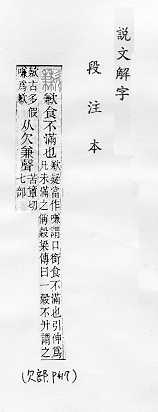 說文解字
段注本
歉食不滿也
歉疑當作嗛謂口銜食不滿也引伸爲
凡未滿之偁穀梁傳曰一穀不升謂之
歉古多假
嗛爲歉
从欠兼聲
苦簟切
七部
(欠部. P417)